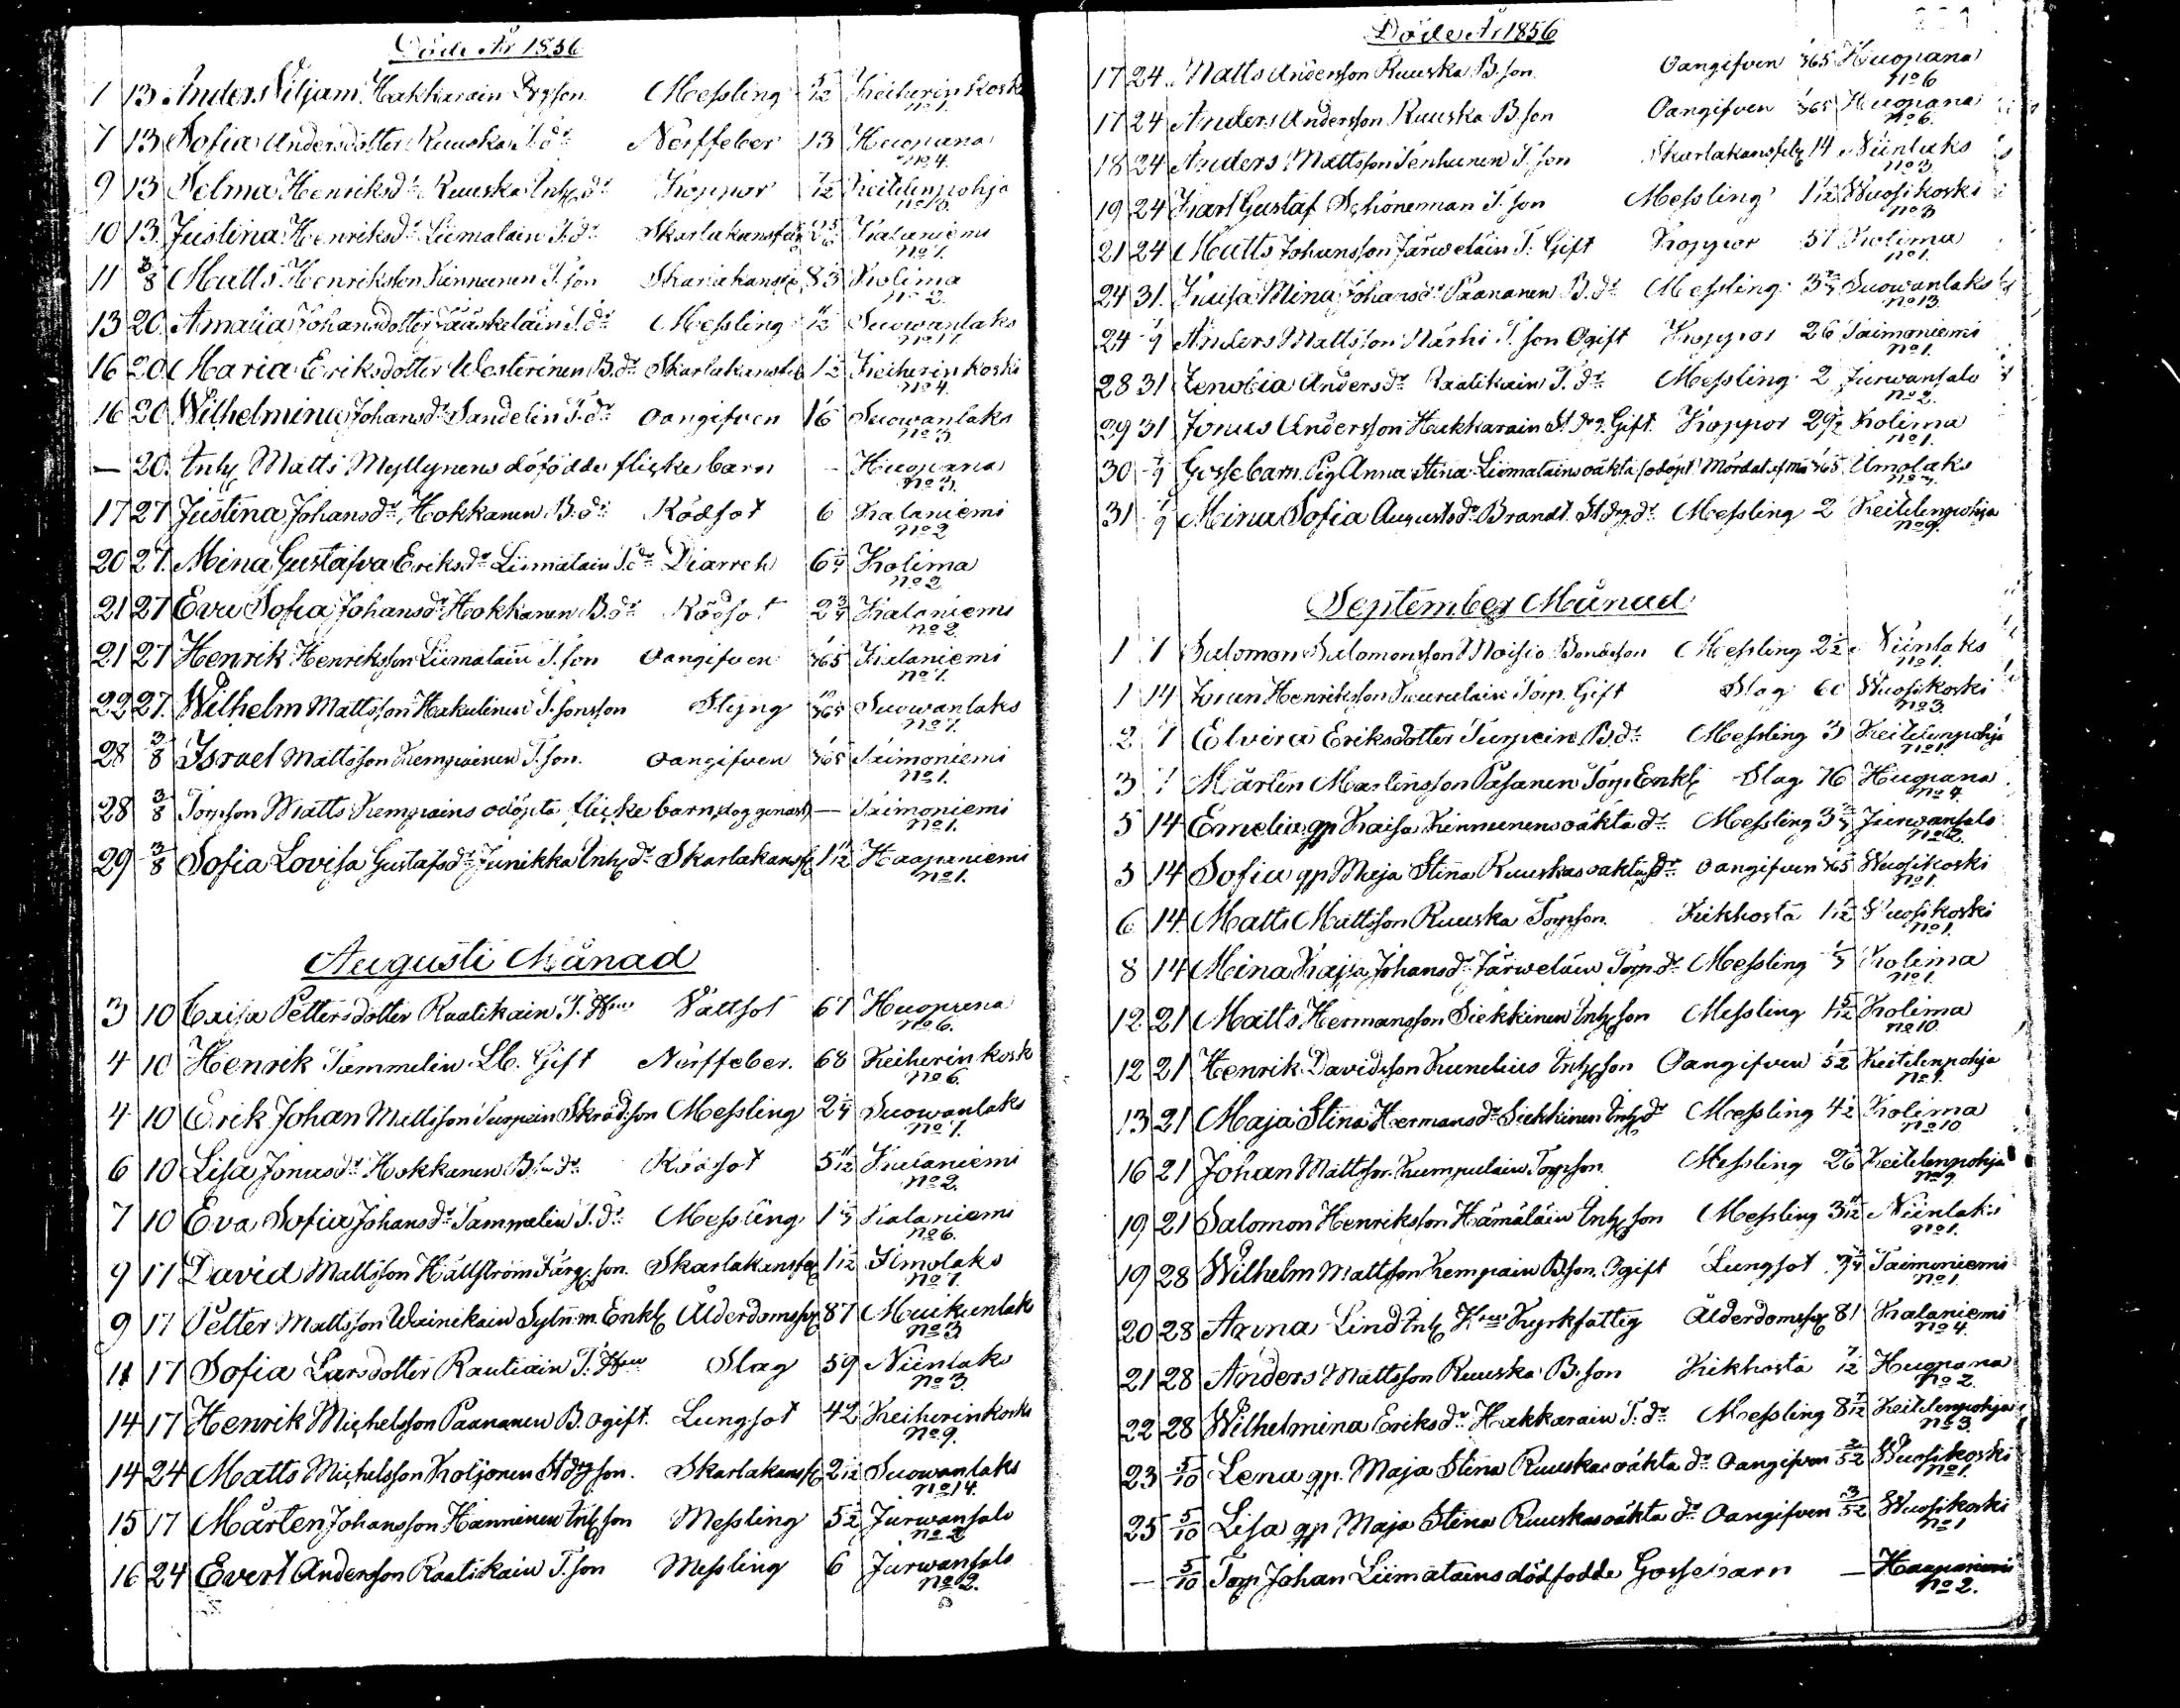 Döde År 1856
1 13 Anders Viljam Hakkarain Drgson Messling 5/12 Keiherinkosk
No 1.
7 13 Sofia Andersdotter Ruuska T. dr Nerffeber 13 Huopana
No 4.
9 13 Selma Henriksdr Ruuska Inh. dr Koppor 7/12 Keitelenpohja
No 10.
10 13 Justina Henriksdr Liimatain T. dr Skarlakansfeb Kalaniemi
No 1.
11 3/8 Matts Henriksson Kinnunen T. son Skarlakansfe Kolima
No 2.
13 20 Amalia Johansdotter Jääskeläin T. dr Messling Suowanlaks
No 17.
16 20 Maria Eriksdotter Westerinen B. dr Skarlakansfeb 1 1/2 Keiherinkoski
No 4.
16 20 Wilhelmina Johansdr Sandelin T. dr Oangifven 16 Suowanlaks
No 3.
— 20 Inh. Matts Myllynens döfödda flickebarn — Huopana
No 3.
17 27 Justina Johansdr Hokkanen B. dr Rödsot 6 Kalaniemi
No 2
20 27 Mina Gustafva Eriksdr Liimatain T. dr Diarreh 6 1/4 Kolima
No 2
21 27 Eva Sofia Johansdr Hokkanen B. dr Rödsot 2 3/4 Kalaniemi
No 2.
21 27 Henrik Henriksson Liimatain T. son Oangifven Kalaniemi
No 1.
22 27 Wilhelm Mattsson Hakulinen T. sonsson Slyng 10/365 Suowanlaks
No 7.
28 3/8 Israel Mattsson Kempainen T. son Oangifven Taimoniemi
No 1.
28 3/8 Torpson Matts Kempains odöpta flickebarn, dog genast — Taimoniemi
No 1.
29 3/8 Sofia Lovisa Gustafsdr Junikka Inh. dr Skarlakansf 1 11/12 Haapaniemi
No 1.
Augusti Månad
3 10 Caisa Pettersdotter Raatikain T. Hru Vattsot 67 Huopana
No 6.
4 10 Henrik Tammelin Lb. Gift Nerffeber. 68 Keiherinkosk
No 6.
4 10 Erik Johan Mattsson Turpein Skrädson Messling 2 1/4 Suowanlaks
No 7.
6 10 Lisa Jonasdr Hokkanen B. dr Rödsot 5 11/12 Kalaniemi
No 2.
7 10 Eva Sofia Johansdr Tammelin T. dr Messling Kalaniemi
No 6.
9 17 David Mattsson Hällström Färg. son Skarlakansfeb 1 1/12 Ilmolaks
No 7.
9 17 Petter Mattsson Wainikain Sytn. m. Enkl. Ålderdomssv 87 Muikunlak
No 3
11 17 Sofia Larsdotter Rautiain T. Hru Slag 59 Niinlaks
No 3.
14 17 Henrik Michelsson Paananen B. ogift. Lungsot 42 Keiherinkoski
No 9.
14 24 Matts Michelsson Koljonen St dg son. Skarlakansf Suowanlaks
No 14.
15 17 Mårten Johansson Hänninen Inh. son Messling 5 1/2 Jurwansalo
No 2
16 24 Evert Andersson Raatikain T. son Messling 6 Jurwansalo
No 12.
Döde År 1856
17 24 Matts Andersson Ruuska B. son Oangifven 1/365 Huopana
No 6
17 24 Anders Andersson Ruuska B. son Oangifven 1/365 Huopana
No 6.
18 24 Anders Mattsson Tenhunen T. son Skarlakansfeb 14 Niinlaks
No 3
19 24 Karl Gustaf Schöneman T. son Messling 1 1/12 Wuosikoski
No 3
21 24 Matts Johansson Järweläin T. Gift Koppor 57 Kolima
No 1.
24 31 Kaisa Mina Johansdr Paananen B. dr Messling 3 3/4 Suowanlaks
No 13
24 7/9 Anders Mattsson Närhi T. son Ogift Koppor 26 Taimoniemi
No 1.
28 31 Zenobia Andersdr Raatikain T. dr Messling 2 Jurwansalo
No 2.
29 31 Jonas Andersson Hakkarain St. dr. Gift. Koppor 29 1/2 Kolima
No 1.
30 7/9 Gossebarn Pig. Anna Stina Liimatains oäkta, odöpt Mördat af ma 1/365 Ilmolaks
No 7.
31 7/9 Mina Sofia Augustsdr Brandt St dg dr Messling 2 Keitelenpohja
No 9.
September Månad
1 7 Salomon Salomonsson Moisio Bondson Messling 2 1/2 Niinlaks
No 1.
1 14 Johan Henriksson Torp. Gift Slag 60 Wuosikoski
No 3.
2 7 Elvira Eriksdotter Turpein B. dr Messling 3 Keitelenpohja
No 1.
3 7 Mårten Mårtensson Pasanen Torp Enkl. Slag 76 Huopana
No 4.
5 14 Emelia qp Kaisa Kinnunens oäkta dr Messling 3 3/4 Jurwansalo
No 2.
5 14 Sofia qp Maja Stina Ruuskas oäkta dr Oangifven Wuosikoski
No 1.
6 14 Matts Mattsson Ruuska Torpson Kikhosta 1 1/12 Wuosikoski
No 1.
8 14 Mina Kajsa Johansdr Järweläin Torp. dr Messling Kolima
No 1.
12 21 Matts Hermansson Siekkinen Inh. son Messling 1 5/12 Kolima
No 10.
12 21 Henrik Davidsson Kunelius Inh. son Oangifven 1/52 Keitelenpohja
No 1.
13 21 Maja Stina Hermansdr Siekkinen Inh. dr Messling 4 1/2 Kolima
No 10
16 21 Johan Mattsson Kumpulain Torpson Messling Keitelenpohja
No 9
19 21 Salomon Henriksson Hämäläin Inh. son Messling 3 11/12 Niinlaks
No 1.
19 28 Wilhelm Mattsson Kempain B. son. Ogift Lungsot Taimoniemi
No 1.
20 28 Anna Lind Inh. Hru Kyrkfattig Ålderdomssv 81 Kalaniemi
No 4.
21 28 Anders Mattsson Ruuska B. son Kikhosta 7/12 Huopana
No 2.
22 28 Wilhelmina Eriksdr Hakkarain T. dr Messling 8 7/12 Keitelenpohja
No 3.
23 5/10 Lena qp. Maja Stina Ruuskas oäkta dr Oangifven 2/52 Wuosikoski
No 1.
25 5/10 Lisa qp Maja Stina Ruuskas oäkta dr Oangifven 3/52 Wuosikoski
No 1
— 5/10 Torp Johan Liimatains dödfödde Gossebarn — Haapaniemi
No 2.